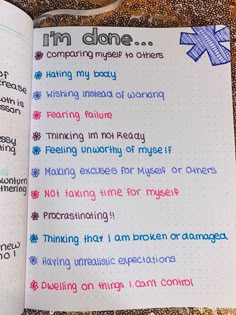 I'm done...
Comparing myself to others
Hating my body
Wishing instead of working
Fearing failure
Thinking im not Ready
Feeling unworthy of myself
Making excuses for Myself or Others
Not taking time for myself
Procrastinating!!
Thinking that I am broken or damaged
Having unrealistic expectations
Dwelling on things I cant control